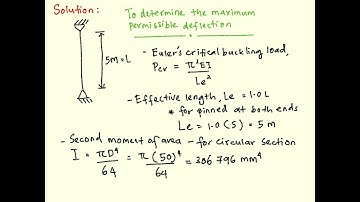 Solution:
To determine the maximum
permissible deflection
5m = L
- Euler's critical buckling load,
Pcr = π²EI
Le²
- Effective length, Le = 1.0L
* for pinned at both ends
Le = 1.0(5) = 5m
- Second moment of area - for circular section
I = πD⁴ = π(50)⁴ = 306 796 mm⁴
64 64